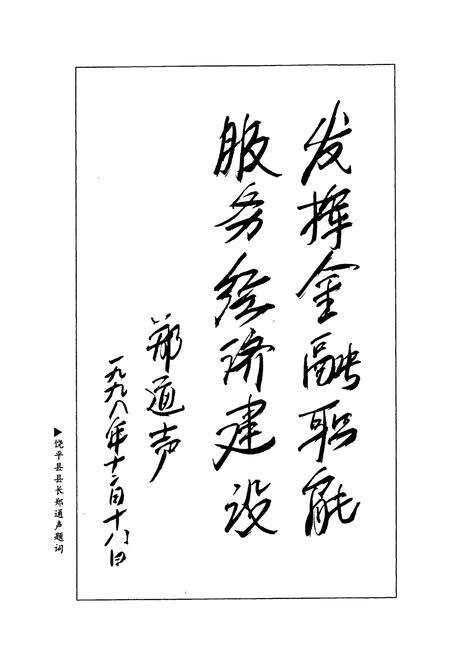 发挥金融职能
服务经济建设
郑通声
一九九八年十二月十八日
▶饶平县县长郑通声题词